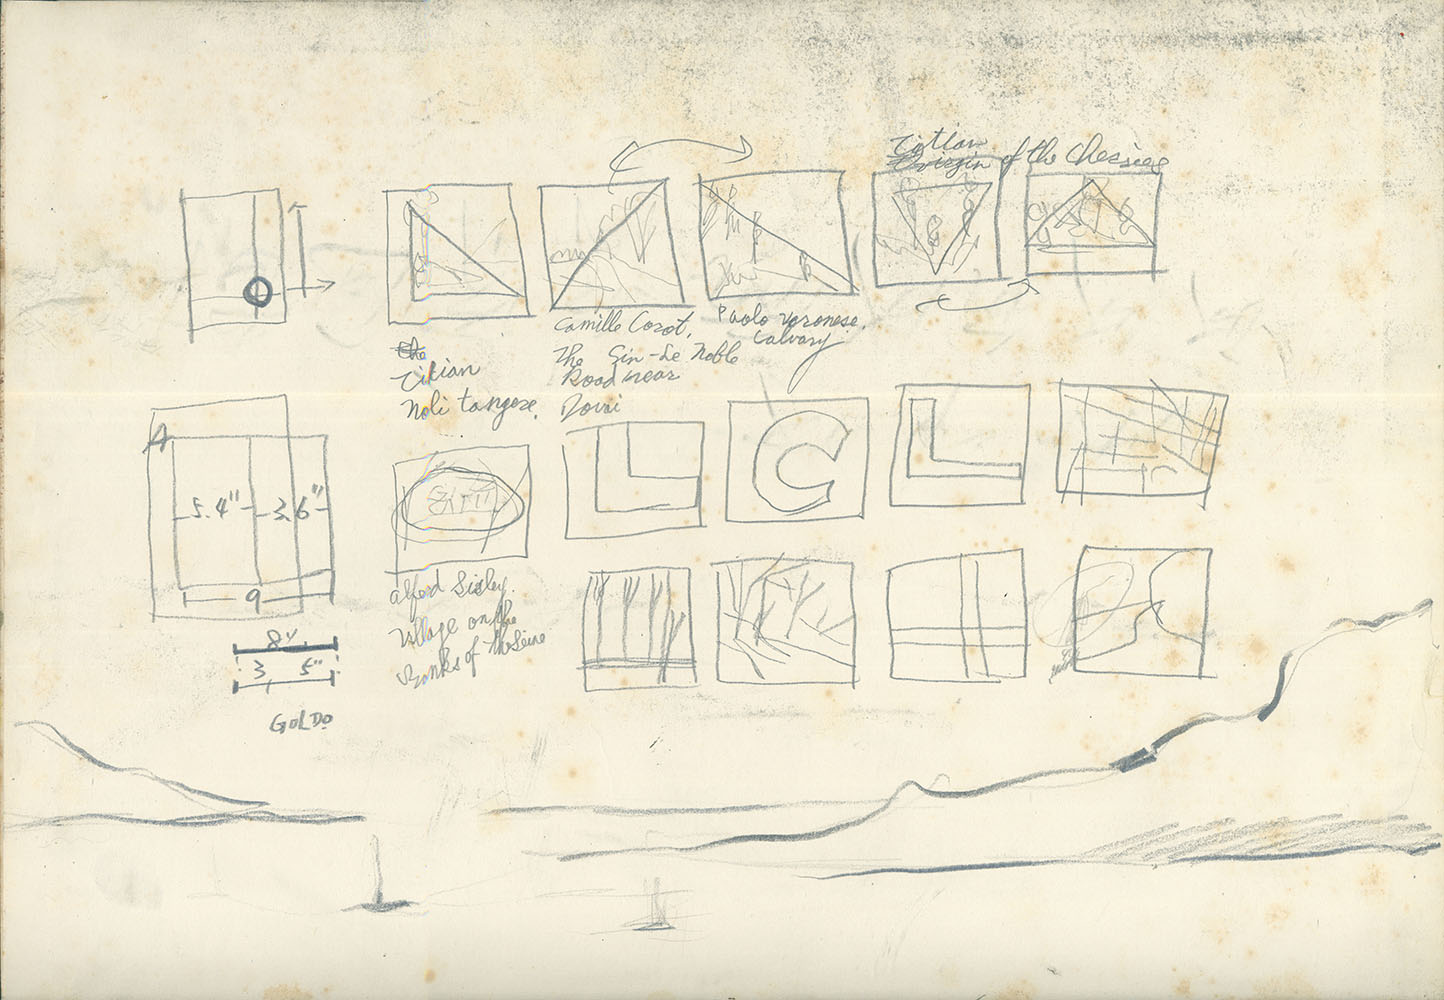 Titian
Virgin of the Cherries
Camille Corot,
The Sin-Le Noble
Road near
Dovai
Paolo Veronese.
Calvary
the
Titian
Noli tangere.
A
5.4" 3.6"
9
L C L
Alford Sisley.
Village on the
Banks of the Seine
8"
3 5"
GOLDO